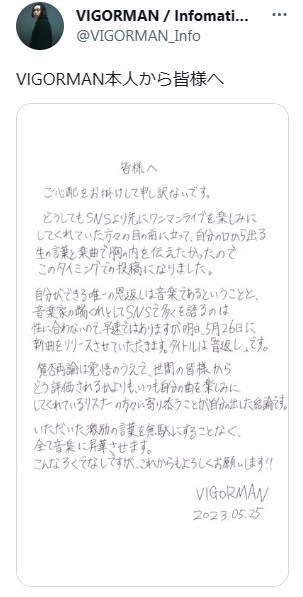 VIGORMAN / Infomati...
@VIGORMAN_Info
VIGORMAN本人から皆様へ
皆様へ
ご心配をお掛けして申し訳ないです。
どうしてもSNSより先にワンマンライブを楽しみに
してくれていた方々の目の前に立って、自分の口から出る
生の言葉と楽曲で胸の内を伝えたかったので
このタイミングでの投稿になりました。
自分ができる唯一の恩返しは音楽であるということと、
音楽家の端くれとしてSNSで多くを語るのは
性に合わないので、早速ではありますが明日、5月26日に
新曲をリリースさせていただきます。タイトルは「音返し」です。
賛否両論は覚悟のうえで、世間の皆様から
どう評価されるかよりも、いつも自分の曲を楽しみに
してくれているリスナーの方々に寄り添うことが自分の出した結論です。
いただいた激励の言葉を無駄にすることなく、
全て音楽に昇華させます。
こんなろくでなしですが、これからもよろしくお願いします!!
VIGORMAN
2023.05.25